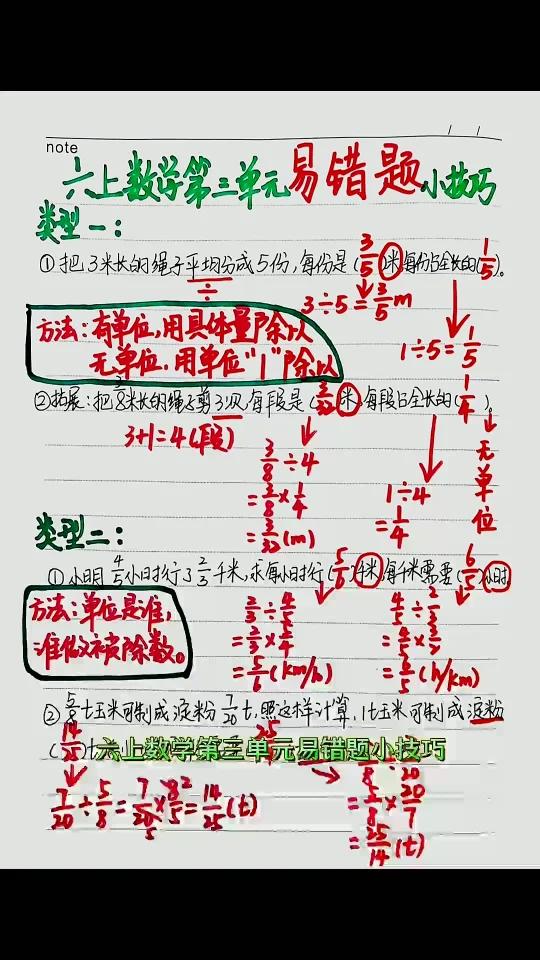 note
六上数学第三单元易错题小技巧
类型一：
①把3米长的绳子平均分成5份，每份是(3/5)米,每份占全长的(1/5)。
÷
3÷5=3/5m
方法：有单位，用具体量除以
无单位，用单位"1"除以
1÷5=1/5
②拓展：把3/8米长的绳子剪3次,每段是(3/32)米,每段占全长的(1/4)
3+1=4(段)
3/8÷4
=3/8×1/4
=3/32(m)
1÷4
=1/4
无单位
类型二：
①小明4/5小时行了2/3千米,求每小时行(5/6)千米,每千米需要(6/5)小时
方法：单位是谁，
谁做被除数。
2/3÷4/5
=2/3×5/4
=5/6(km/h)
4/5÷2/3
=4/5×3/2
=6/5(h/km)
②5/8t玉米可制成淀粉7/20t,照这样计算,1t玉米可制成淀粉
(14/25)t
25
六上数学第三单元易错题小技巧
7/20÷5/8=7/20×8/5=14/25(t)
2
5
8÷20
=5/8×20/7
=25/14(t)